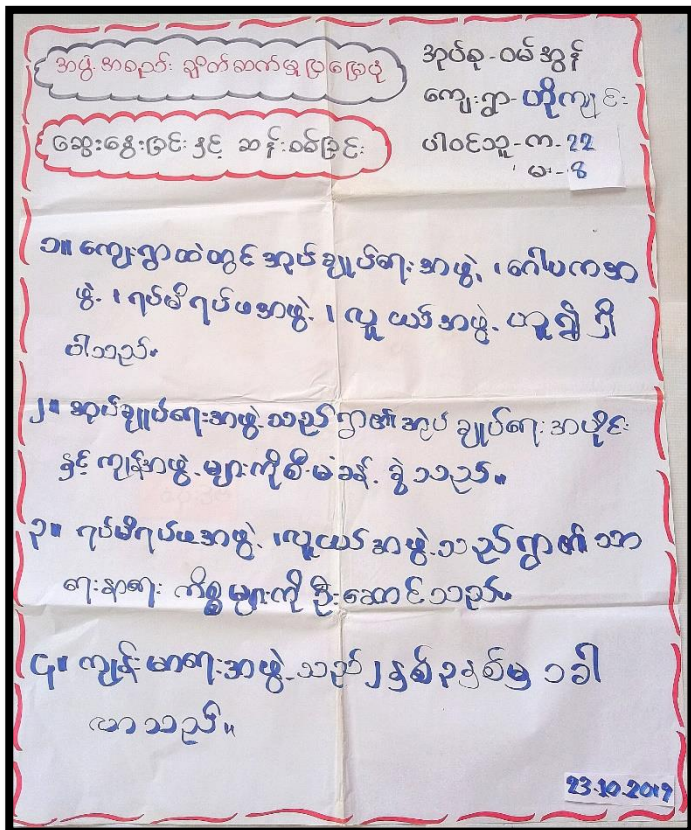 အဖွဲ့အစည်း ချိတ်ဆက်မှုပြမြေပုံ
ဆွေးနွေးခြင်းနှင့် ဆန်းစစ်ခြင်း
အုပ်စု-ဝမ်အွန်
ကျေးရွာ-ဟိုကျင်း
ပါဝင်သူ-က-22
မ-8
၁။ ကျေးရွာထဲတွင် အုပ်ချုပ်ရေးအဖွဲ့၊ ဂေါပကအ
ဖွဲ့၊ ရပ်မိရပ်ဖအဖွဲ့၊ လူငယ်အဖွဲ့ ဟူ၍ ရှိ
ပါသည်။
၂။ အုပ်ချုပ်ရေးအဖွဲ့သည် ရွာ၏ အုပ်ချုပ်ရေးအပိုင်း
နှင့် ကျန်အဖွဲ့များကို စီမံခန့်ခွဲသည်။
၃။ ရပ်မိရပ်ဖအဖွဲ့၊ လူငယ်အဖွဲ့သည် ရွာ၏ သာ
ရေးနာရေး ကိစ္စများကို ဦးဆောင်သည်။
၄။ ကျန်းမာရေးအဖွဲ့သည် ၂နှစ် ၃နှစ်မှ ၁ခါ
လာသည်။
23.10.2019